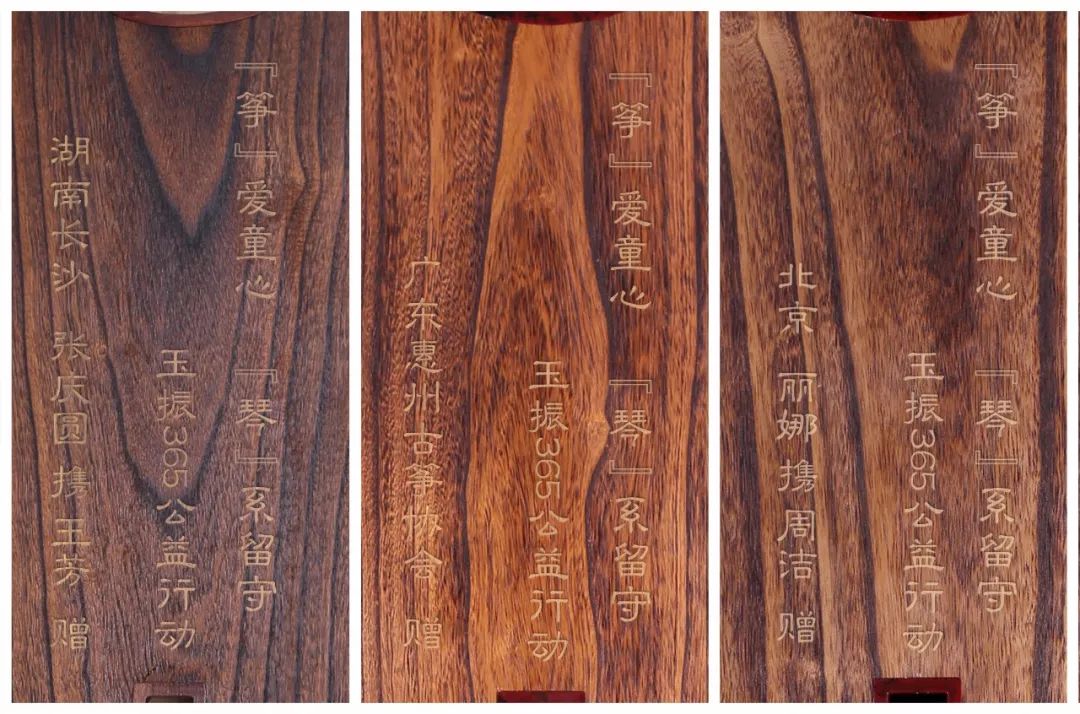 『筝』爱童心 『琴』系留守
玉振365公益行动
湖南长沙 张庆圆 携 王芳 赠
『筝』爱童心 『琴』系留守
玉振365公益行动
广东惠州古筝协会 赠
『筝』爱童心 『琴』系留守
玉振365公益行动
北京 丽娜携周洁 赠